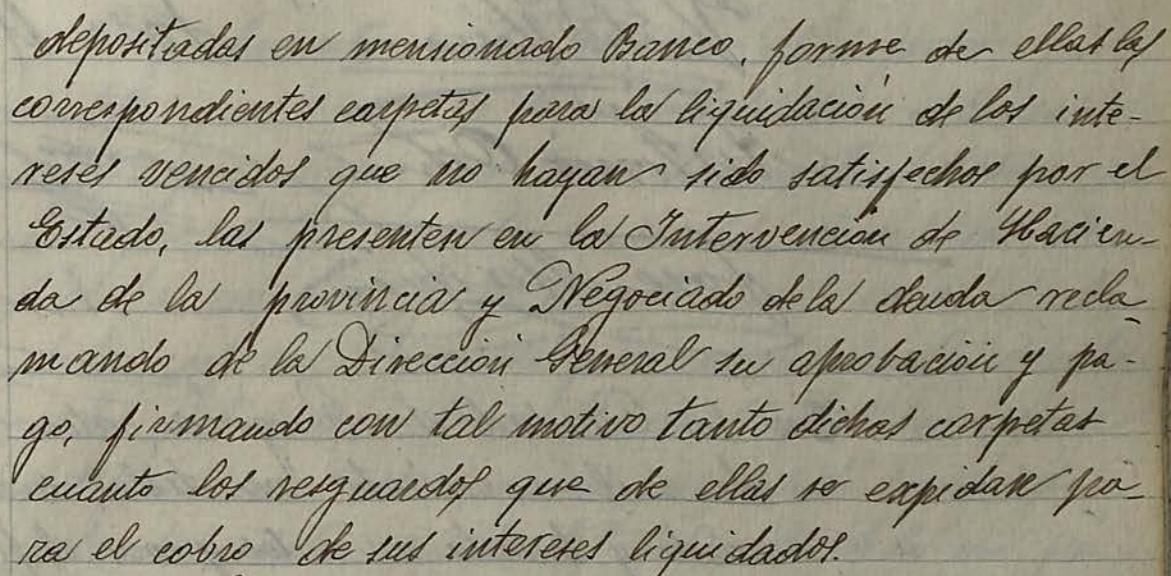 depositadas en mensionado Banco, forme de ellas las
correspondientes carpetas para la liquidación de los inte-
reses vencidos que no hayan sido satisfechos por el
Estado, las presenten en la Intervención de Hacien-
da de la provincia y Negociado de la deuda recla-
mando de la Dirección General su aprobación y pa-
go, firmando con tal motivo tanto dichas carpetas
cuanto los resguardos que de ellas se expidan pa-
ra el cobro de sus intereses liquidados.